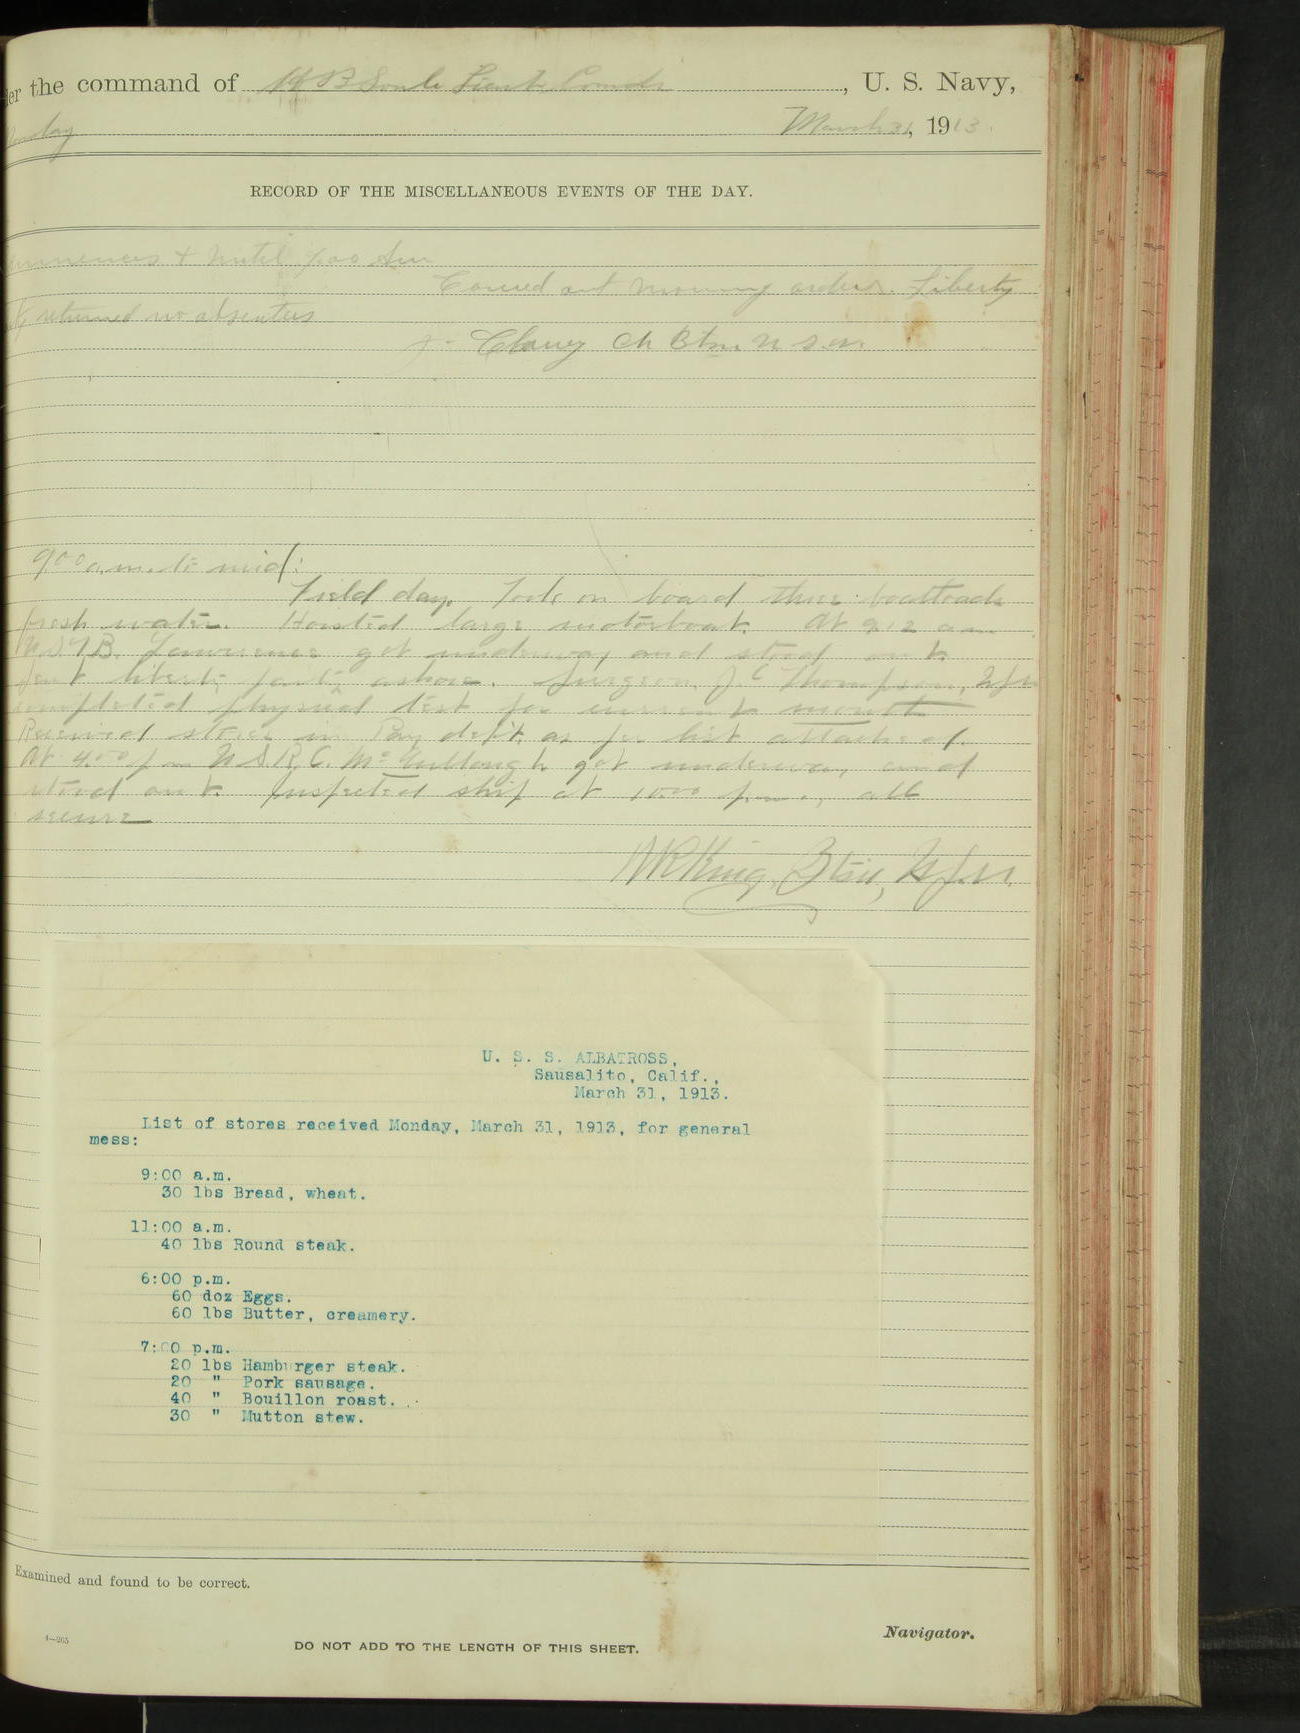 the command of H B Soule Lieut Comdr, U. S. Navy,
March 31, 1913.
RECORD OF THE MISCELLANEOUS EVENTS OF THE DAY.
+ until 9.00 Am
Carried out morning orders. Liberty
returned no absentees
J. Clancy Ch Btsn U S N.
9.00 a.m. to mid:
Field day. Took on board three boatloads
fresh water. Hoisted large motorboat. At 9.12 a m
got underway and stood out.
Sent liberty party ashore. Surgeon J. C. Thompson, USN
completed physical test for current month
Received stores in Pay dep't. as per list attached.
At 4.00 p m U.S.R.C. McCullough got underway and
stood out. Inspected ship at 10.00 p.m., all
secure
King, Btsn, U.S.N.
U. S. S. ALBATROSS,
Sausalito, Calif.,
March 31, 1913.
List of stores received Monday, March 31, 1913, for general
mess:
9:00 a.m.
30 lbs Bread, wheat.
11:00 a.m.
40 lbs Round steak.
6:00 p.m.
60 doz Eggs.
60 lbs Butter, creamery.
7:00 p.m.
20 lbs Hamburger steak.
20 " Pork sausage.
40 " Bouillon roast.
30 " Mutton stew.
Examined and found to be correct.
4—265
Navigator.
DO NOT ADD TO THE LENGTH OF THIS SHEET.